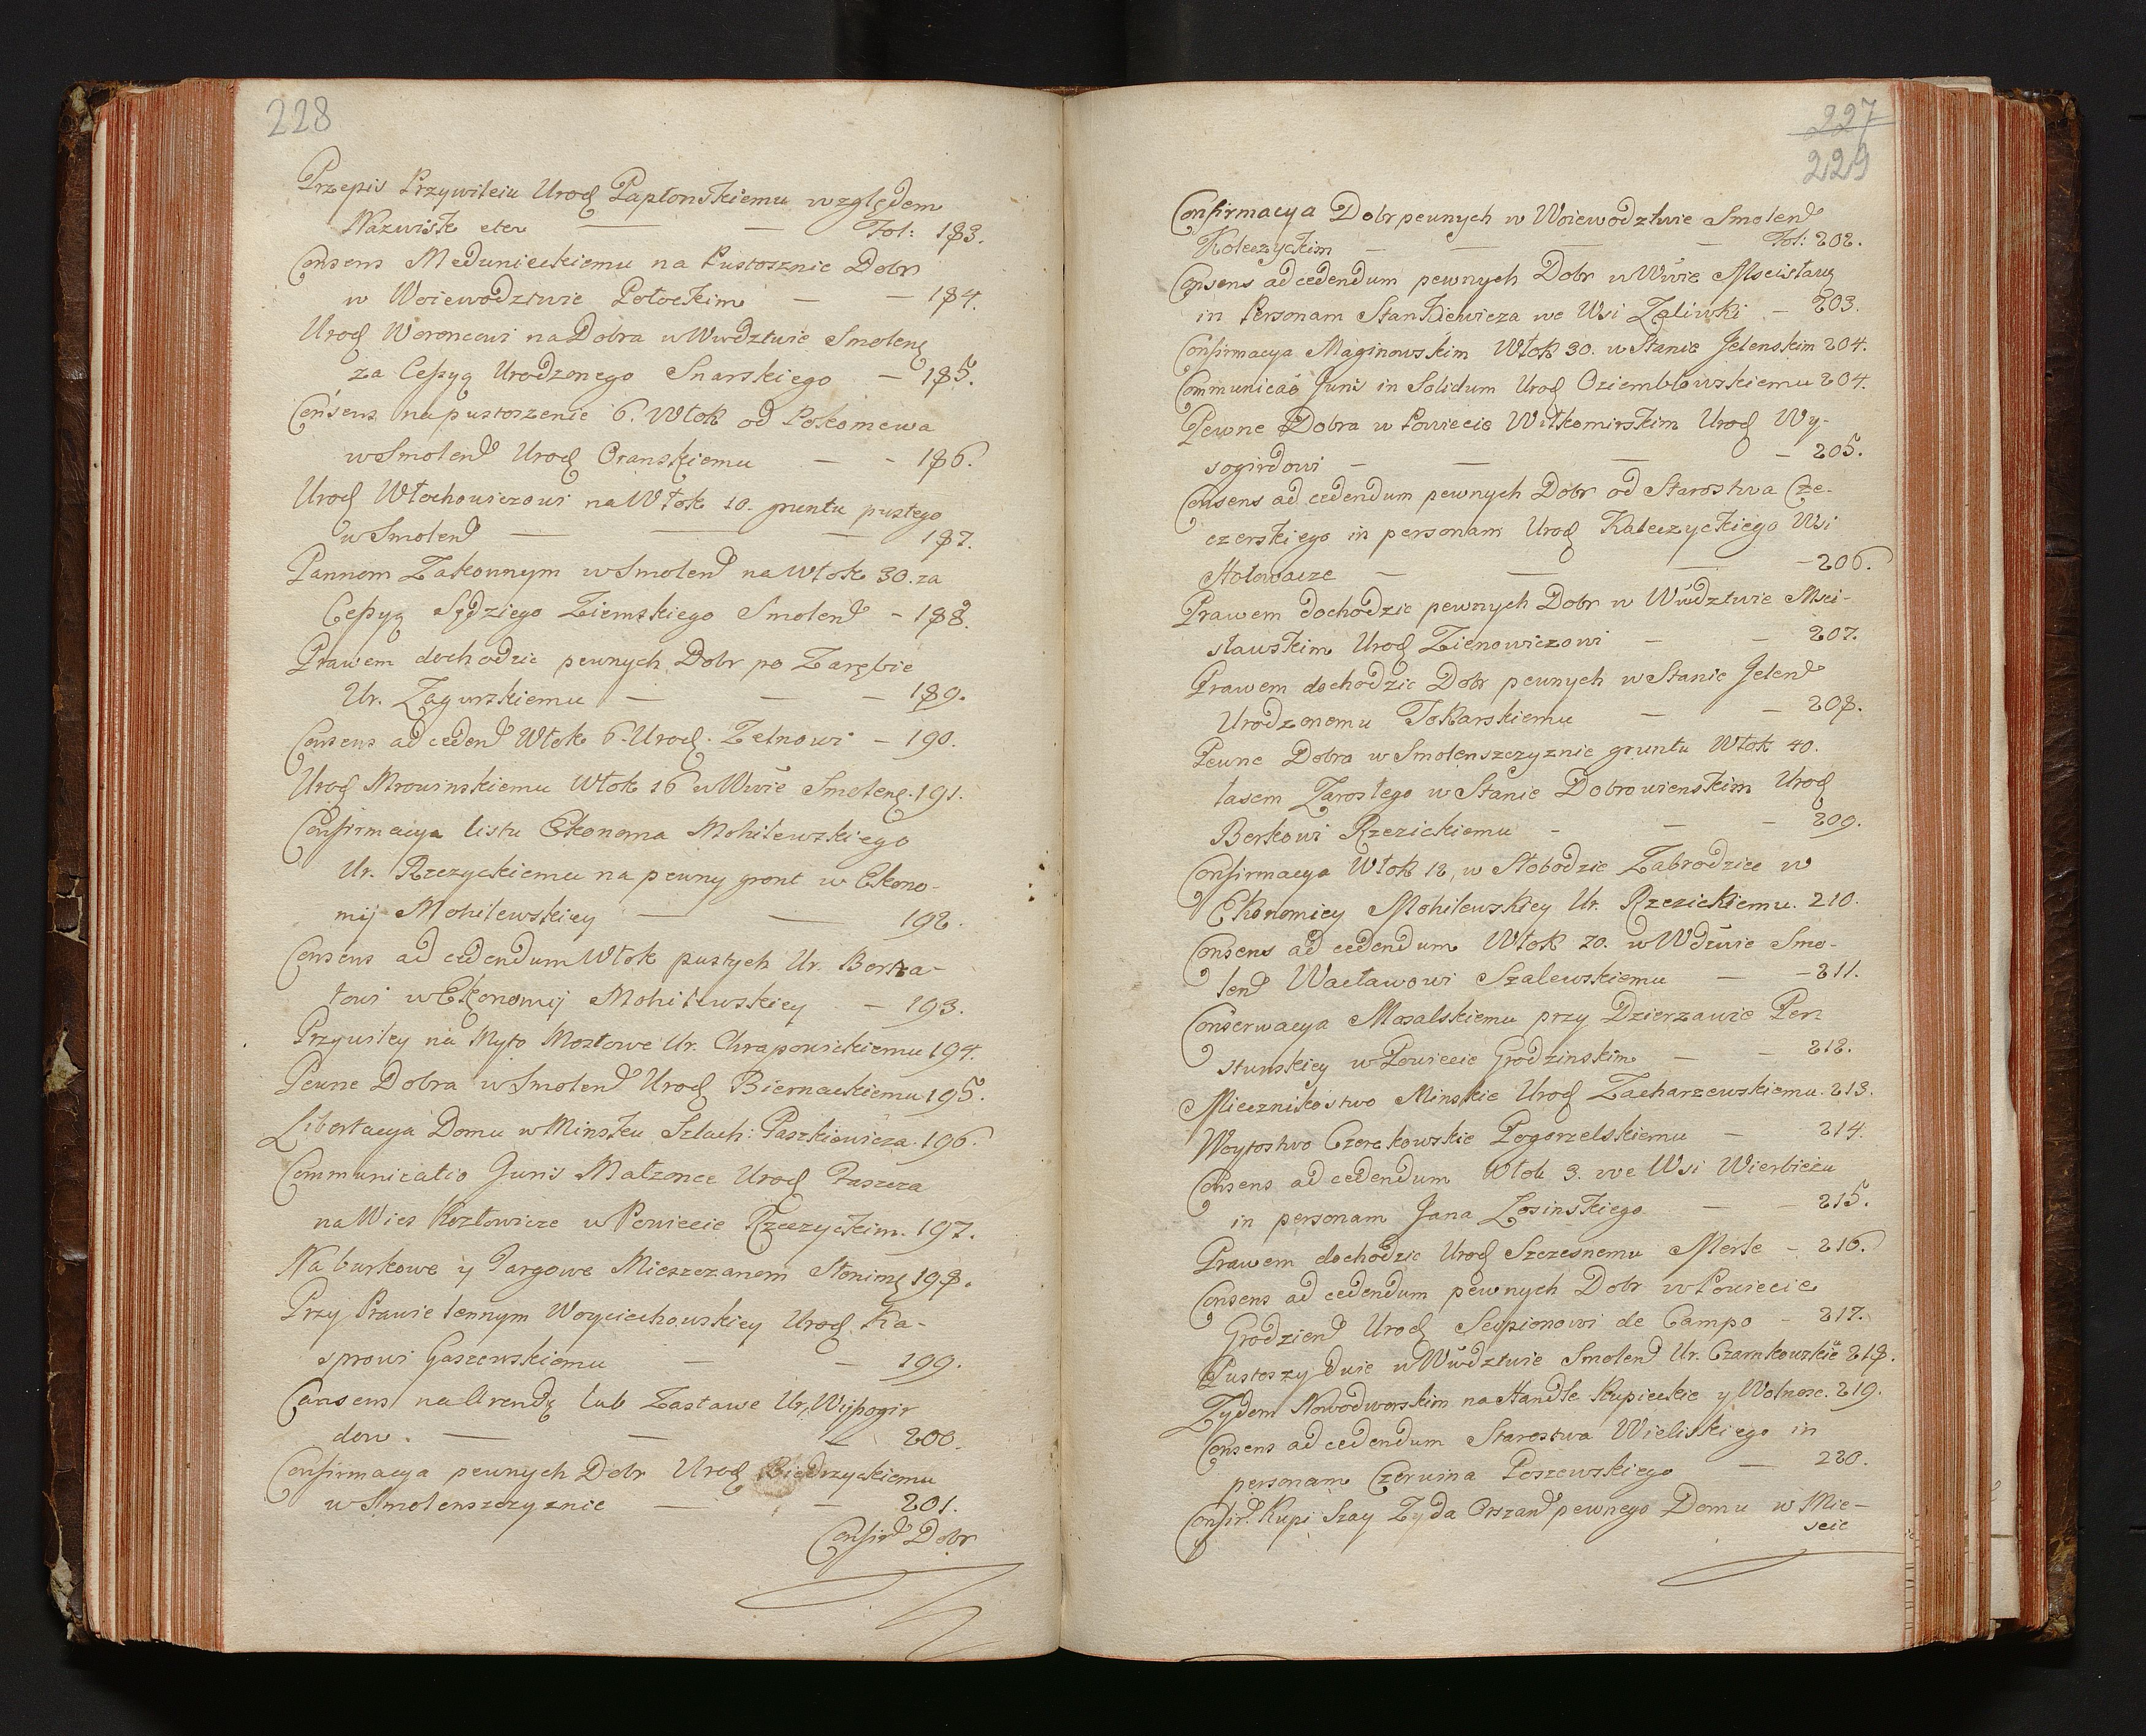 228
Przepis Przywileiu Urod Papłonskiemu względem
Nazwisk etcr — — Fol: 183.
Consens Medunieckiemu na Pustosznie Dobr
w Woiewodztwie Połockim — — 184.
Urod Woroncowi na Dobra w Wwdztwie Smolen
za Cessyą Urodzonego Snarskiego — 185.
Consens na pustoszenie 6. Włok od
w Smolen Urod Oranskiemu — - 186.
Urod Włochowiczowi na Włok 10. gruntu pustego
w Smolen — — — 187.
Pannom Zakonnym w Smolen na Włok 30. za
Cessyą Sędziego Ziemskiego Smolen - 188.
Prawem dochodzic pewnych Dobr po Zarębie
Ur. Zagurskiemu — — — 189.
Consens ad ceden Włok 6. Urod. Zelnowi - 190.
Urod Mrowinskiemu Włok 16 w Wwie Smolen. 191.
Confirmacya listu Ekonoma Mohilewskiego
Ur. Rzeczyckiemu na pewny gront w Ekono-
mij Mohilewskiey — — 192.
Consens ad cedendum Włok pustych Ur. Borka-
łowi w Ekonomij Mohilewskiey — 193.
Przywiley na Myto Mostowe Ur. Chrapowickiemu 194.
Pewne Dobra w Smolen Urod Biernackiemu 195.
Libertacya Domu w Minsku Szlach: Paszkiewicza. 196.
Communicatio Juris Małzonce Urod Paszcza
na Wies Kozłowicze w Powiecie Rzeczyckim. 197.
Na burkowe y Targowe Mieszczanom Słonim 198.
Przy Prawie lennym Woyciechowskiey Urod. Ka-
sprowi Gaszewskiemu — — 199.
Consens na Arendę lub Zastawe Ur. Wijpogir
dow. — — — 200.
Confirmacya pewnych Dobr Urod Biedrzyckiemu
w Smolenszczyznie — — 201.
Confir Dobr
227
229
Confirmacya Dobr pewnych w Woiewodztwie Smolen
Koleczyckim — — — Fol: 202.
Consens ad cedendum pewnych Dobr w Wwie Mscisław
in Personam Stankiewicza we Wsi Zaliwki - 203.
Confirmacya Maginowskim Włok 30. w Stanie Jelenskim 204.
Communicao Juris in Solidum Urod Oziembłowskiemu 204.
Pewne Dobra w Powiecie Wiłkomirskim Urod Wy-
sogirdowi — — — - 205.
Consens ad cedendum pewnych Dobr od Starostwa Cze-
czerskiego in personam Urod Kaleczyckiego Wsi
Hołowacze — — — - 206.
Prawem dochodzic pewnych Dobr w Wwdztwie Msci-
sławskim Urod Zienowiczowi — — 207.
Prawem dochodzic Dobr pewnych w Stanie Jelen
Urodzonemu Tokarskiemu — — 208.
Pewne Dobra w Smolenszczyznie gruntu Włok 40.
lasem Zarosłego w Stanie Dobrowienskim Urod
Berkowi Rzezickiemu - — — 209.
Confirmacya Włok 12, w Słobodzie Zabrodziee w
Ekonomiey Mohilewskiey Ur. Rzezickiemu. 210.
Consens ad cedendum Włok 20. w Wdztwie Smo-
len Wacławowi Szalewskiemu — - 211.
Conserwacya Mosalskiemu przy Dzierzawie Per
stunskiey w Powiecie Grodzinskim — - 212.
Miecznikostwo Minskie Urod Zacharzewskiemu. 213.
Woytostwo Czerekowskie Pogorzelskiemu — 214.
Consens ad cedendum Włok 3. we Wsi Wierbiczu
in personam Jana Łosinskiego — - 215.
Prawem dochodzic Urod Szczesnemu Merle - 216.
Consens ad cedendum pewnych Dobr w Powiecie
Grodzien Urod Scipionowi de Campo - 217.
Pustoszy dwie w Wwdztwie Smolen Ur. Czarnkowskie 218.
Zydom Nowodworskim na Handle Kupieckie y Wolnosc. 219.
Consens ad cedendum Starostwa Wieliskiego in
personam Czerwina Poszewskiego — 220.
Confir. Kupi Szay Zyda Orszan pewnego Domu w Mie-
scie